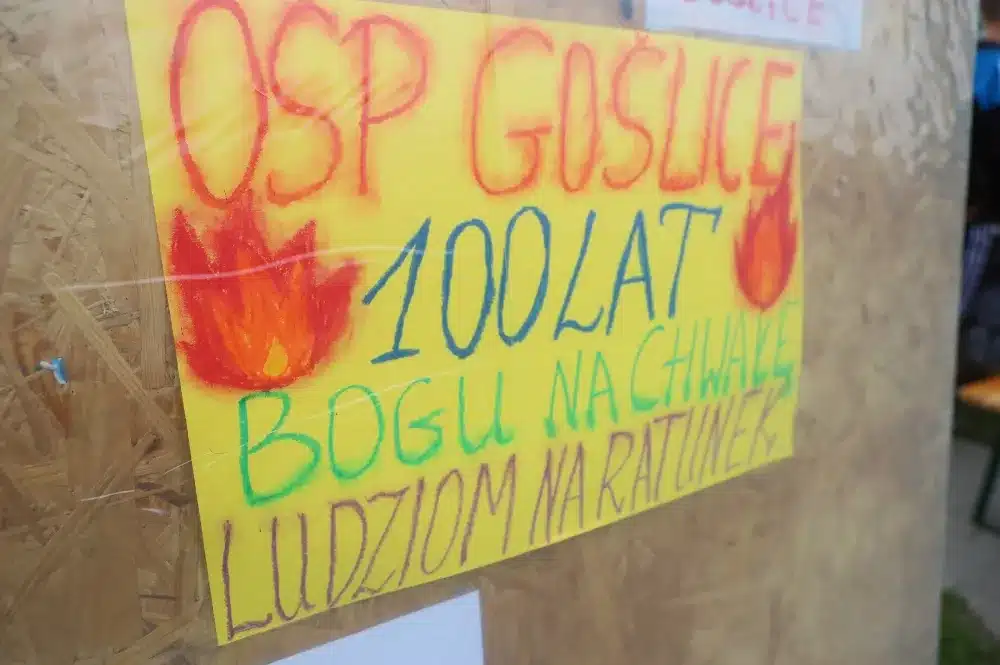 OSP GOŚLICE
100 LAT
BOGU NA CHWAŁĘ
LUDZIOM NA RATUNEK